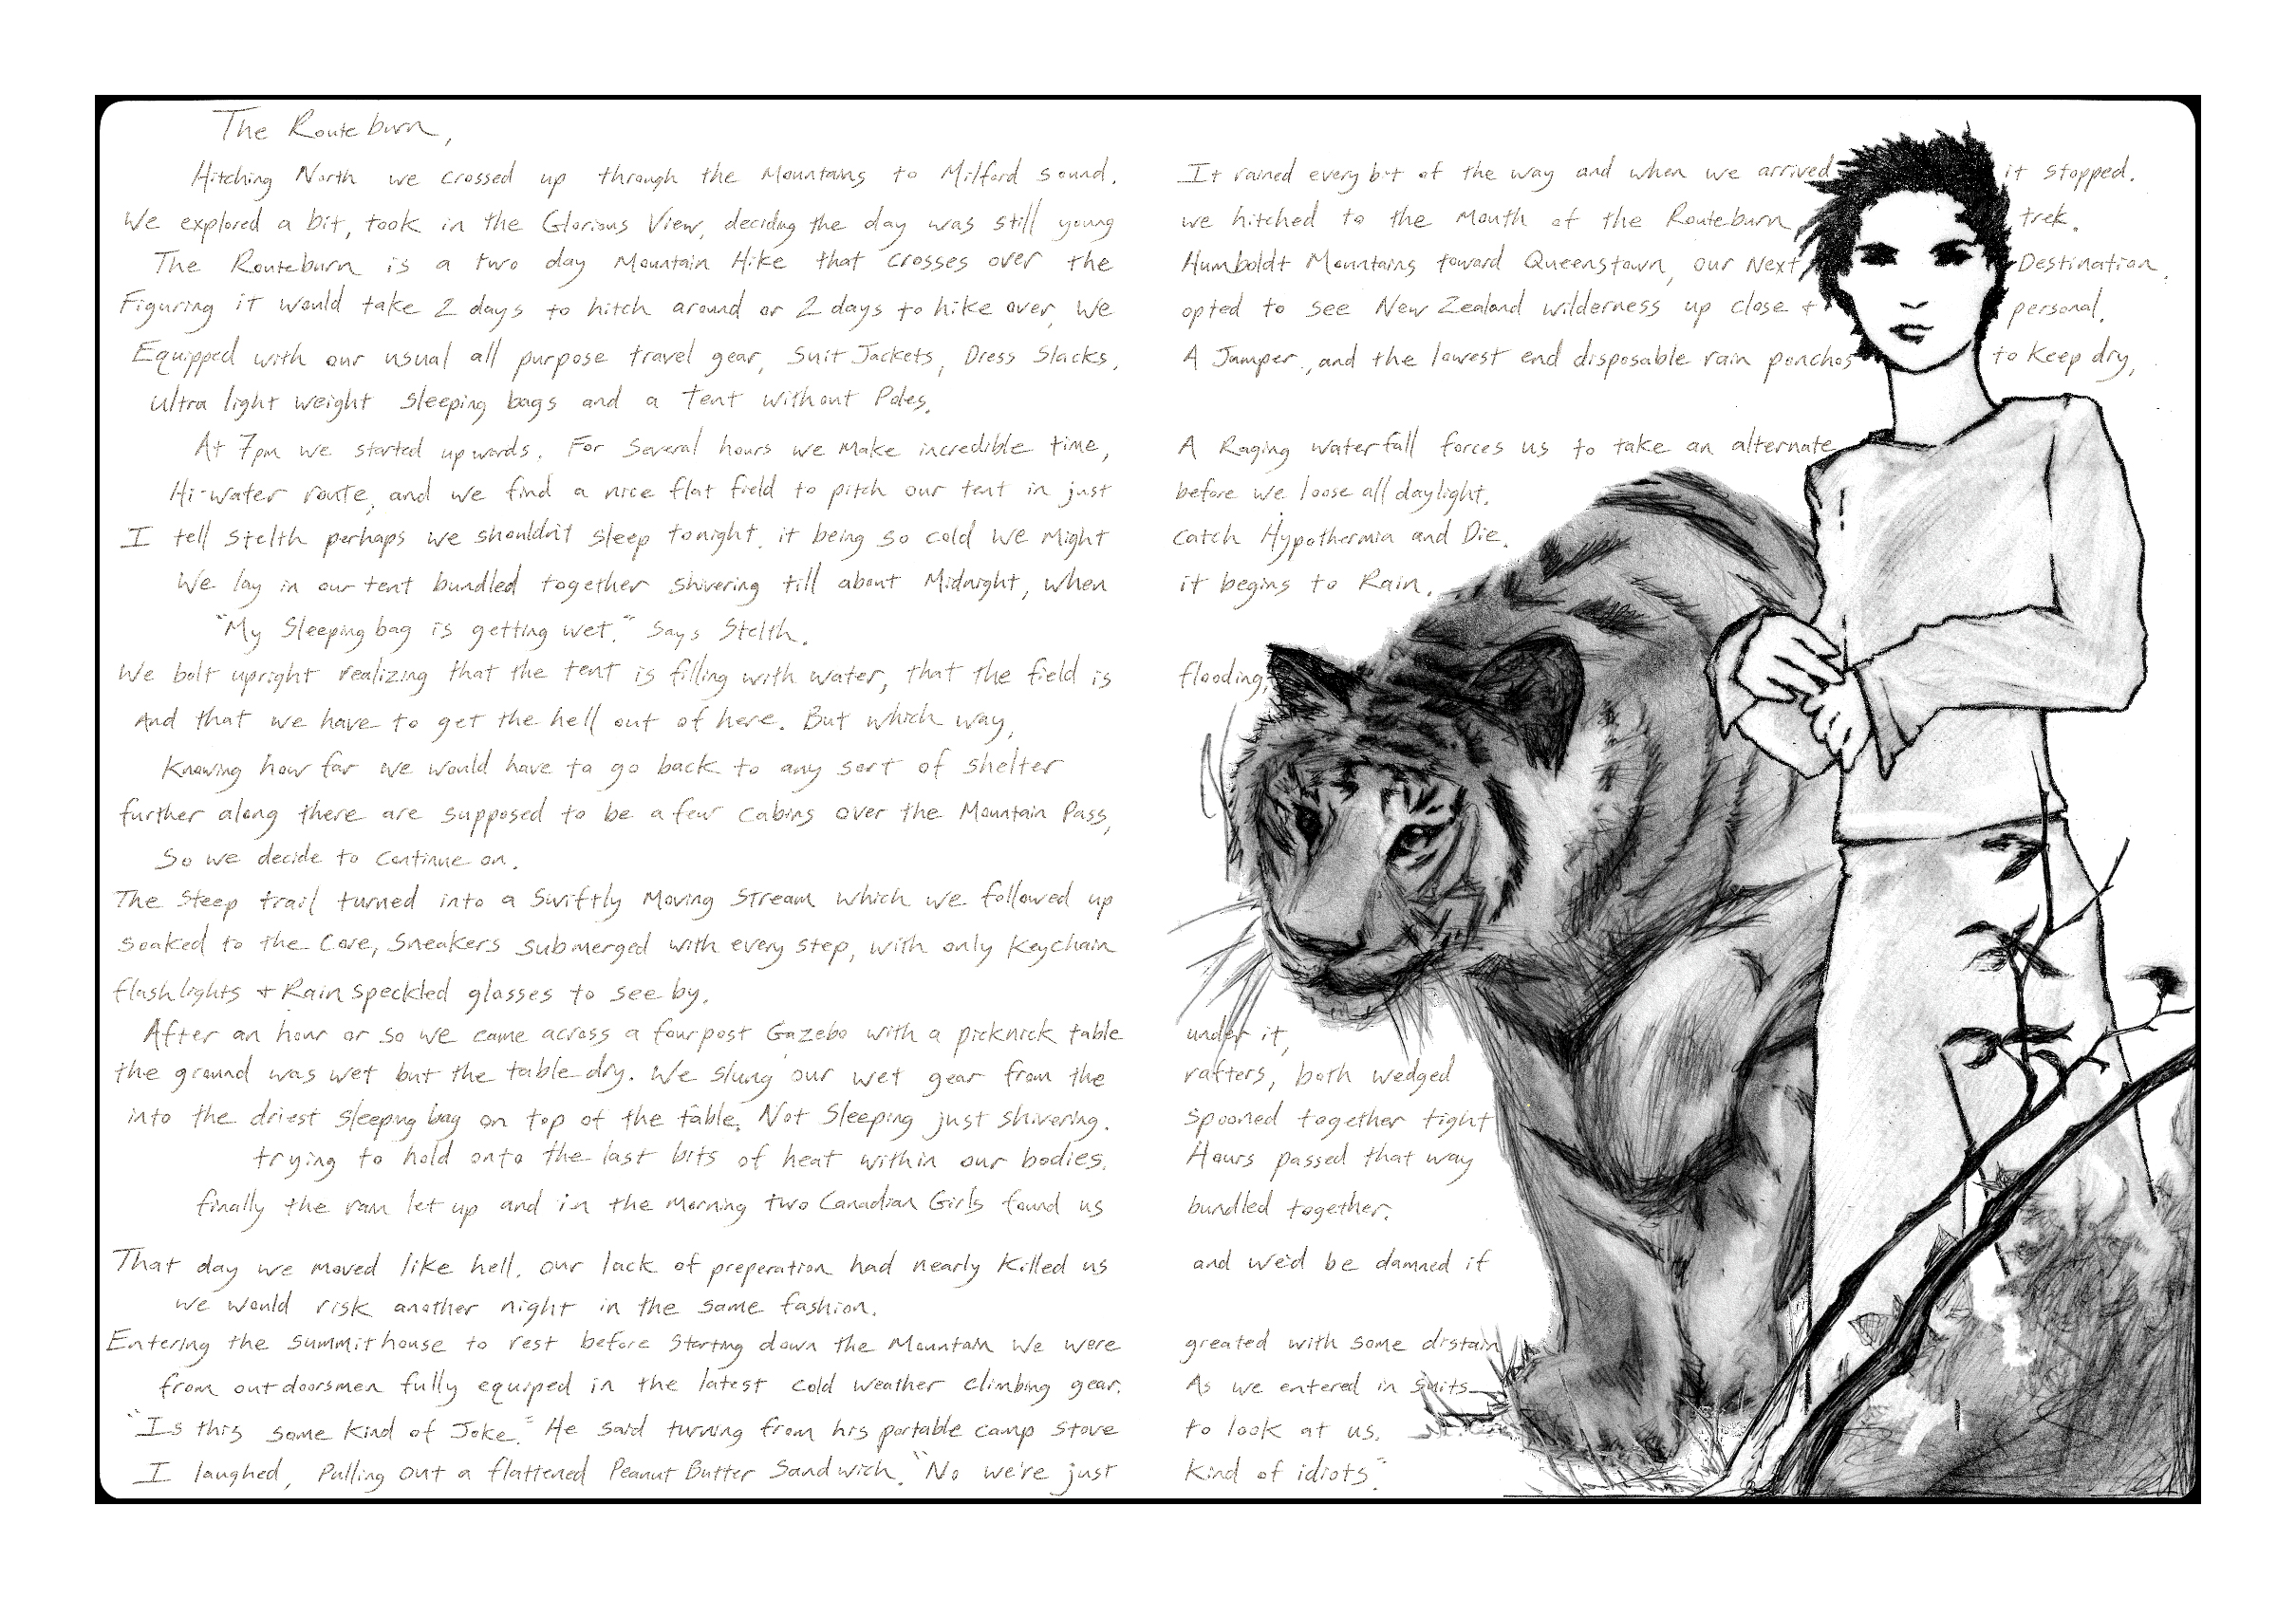 The Routeburn,
Hitching North we crossed up through the Mountains to Milford sound. It rained every bit of the way and when we arrived it stopped.
We explored a bit, took in the Glorious View, deciding the day was still young we hitched to the Mouth of the Routeburn trek.
The Routeburn is a two day Mountain Hike that crosses over the Humboldt Mountains toward Queenstown, our Next Destination.
Figuring it would take 2 days to hitch around or 2 days to hike over, We opted to see New Zealand wilderness up close + personal.
Equipped with our usual all purpose travel gear, Suit Jackets, Dress Slacks, A Jumper, and the lowest end disposable rain ponchos to keep dry,
Ultra light weight sleeping bags and a Tent without Poles.
At 7pm we started upwards. For Several hours we Make incredible time, A Raging waterfall forces us to take an alternate
Hi-water route, and we find a nice flat field to pitch our tent in just before we loose all daylight.
I tell Stelth perhaps we shouldn't sleep tonight. it being so cold we Might catch Hypothermia and Die.
We lay in our tent bundled together shivering till about Midnight, when it begins to Rain.
"My Sleeping bag is getting wet." Says Stelth.
We bolt upright realizing that the tent is filling with water, that the field is flooding,
And that we have to get the hell out of here. But which way,
Knowing how far we would have to go back to any sort of shelter
further along there are supposed to be a few cabins over the Mountain Pass,
So we decide to continue on.
The Steep trail turned into a Swiftly Moving Stream which we followed up
soaked to the Core, Sneakers submerged with every step, with only Keychain
flashlights + Rain speckled glasses to see by.
After an hour or so we came across a four post Gazebo with a picknick table under it,
the ground was wet but the table dry. We slung our wet gear from the rafters, both wedged
into the driest sleeping bag on top of the table. Not Sleeping just shivering. Spooned together tight
trying to hold onto the last bits of heat within our bodies. Hours passed that way
finally the rain let up and in the Morning two Canadian Girls found us bundled together.
That day we moved like hell. our lack of preperation had nearly Killed us and we'd be damned if
we would risk another night in the same fashion.
Entering the summit house to rest before starting down the Mountain We were greated with some distain
from outdoorsmen fully equiped in the latest cold weather climbing gear. As we entered in suits
"Is this some Kind of Joke." He said turning from his portable camp stove to look at us.
I laughed, Pulling out a flattened Peanut Butter Sandwich. "No we're just Kind of idiots"